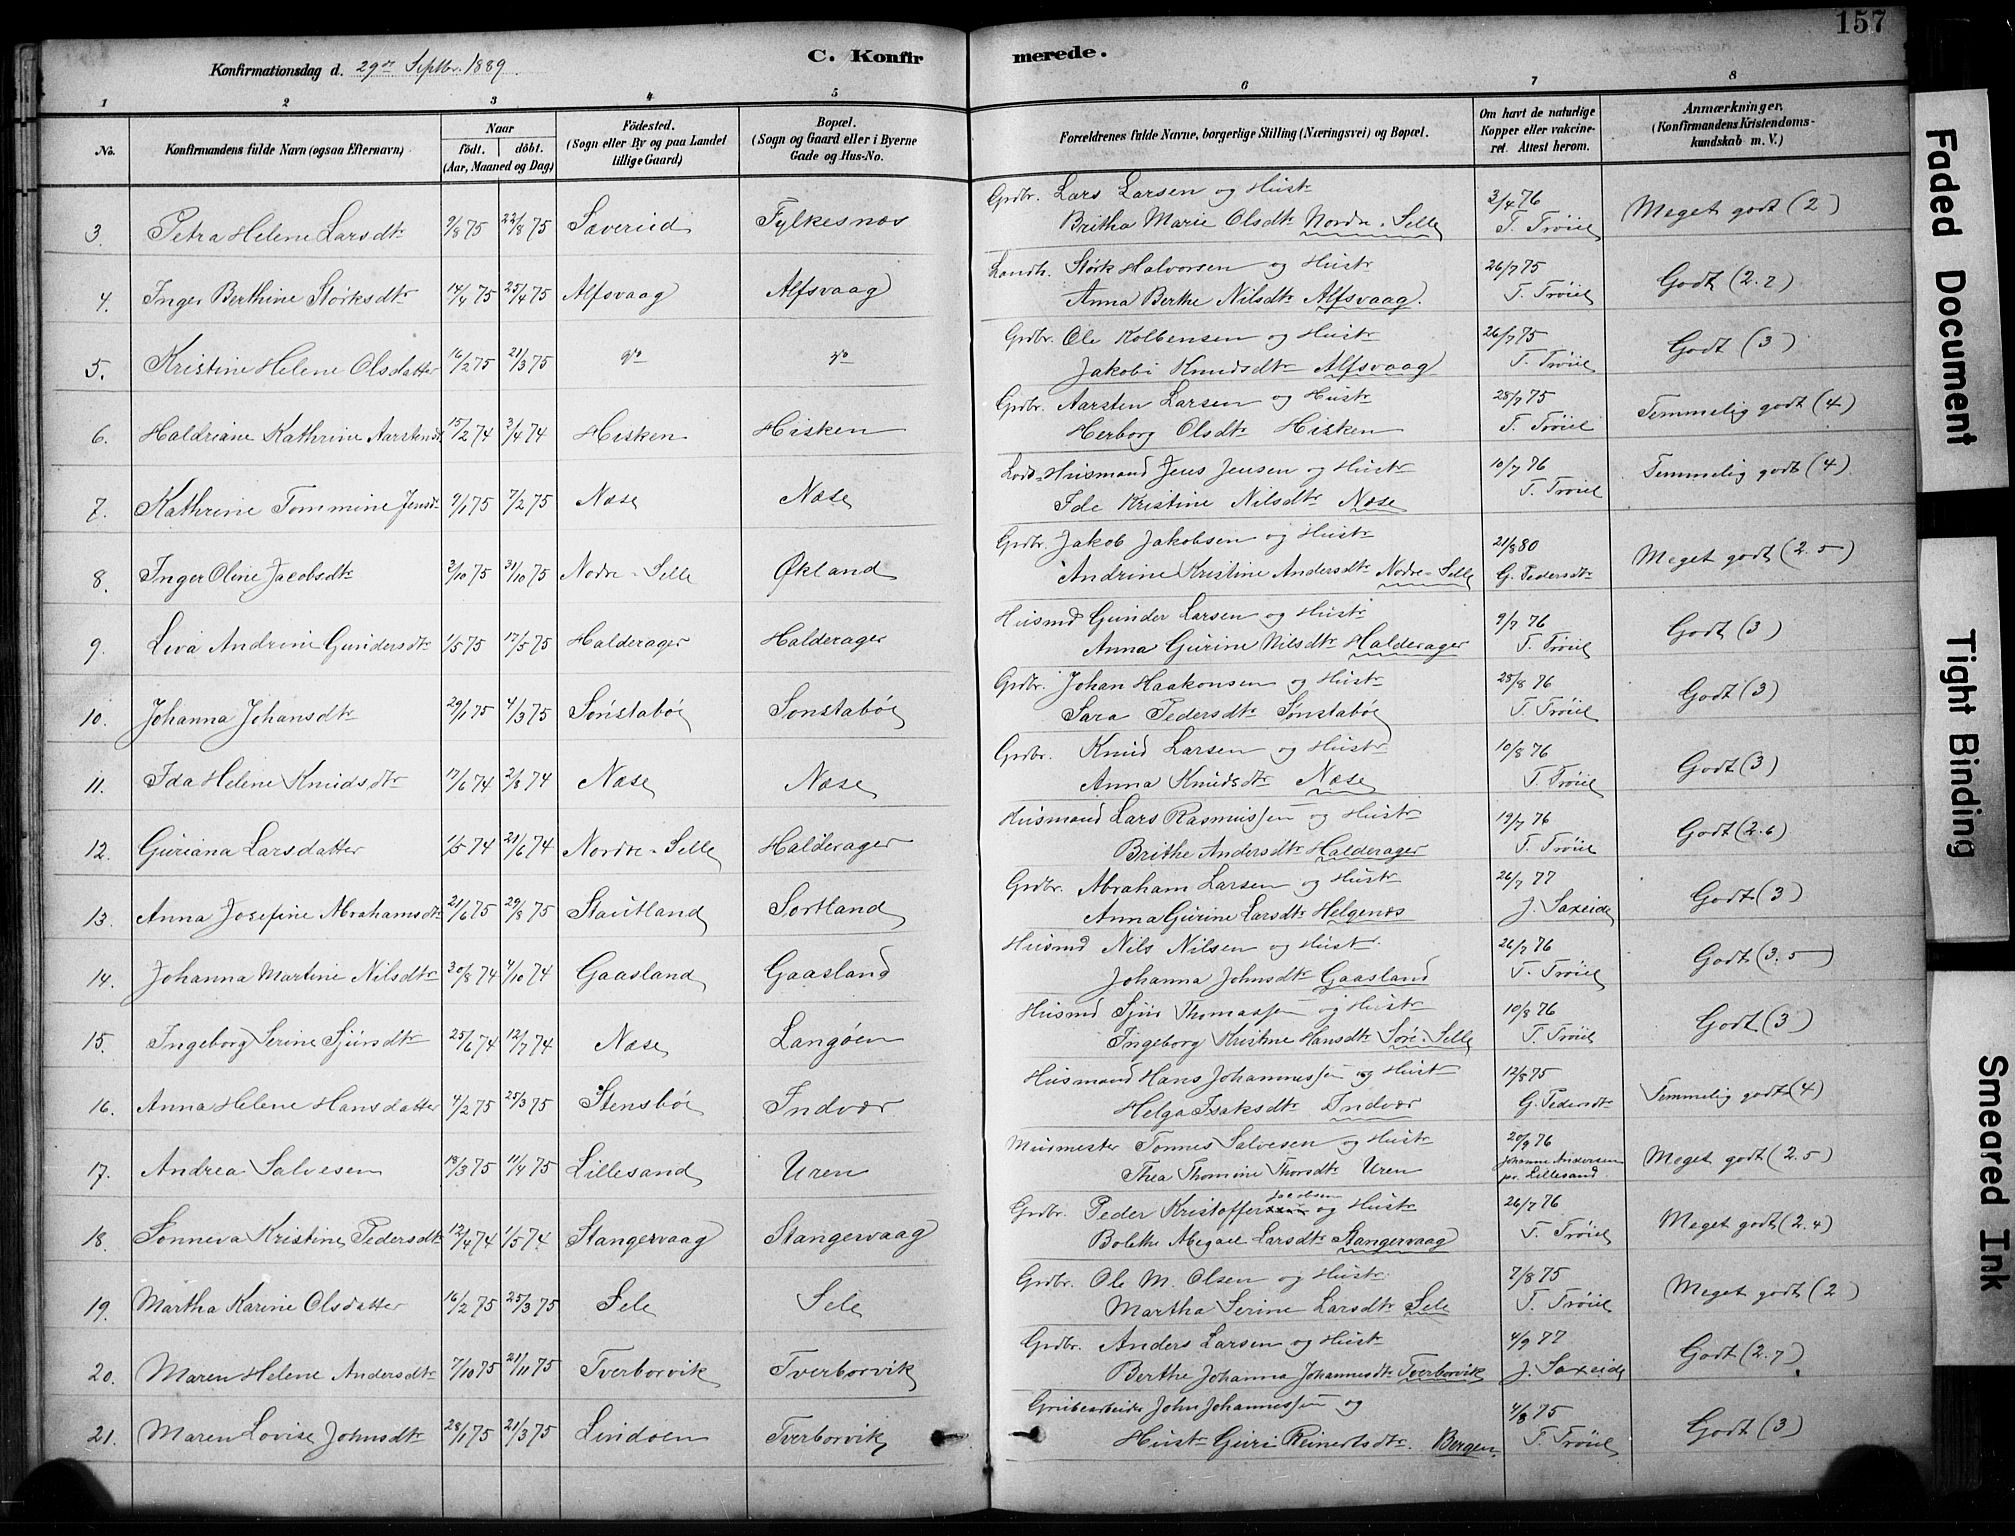 157
Konfirmationsdag d. 29de Septbr. 1889.
C. Konfirmerede.
1 2 3 4 5 6 7 8
No.
Konfirmandens fulde Navn (ogsaa Efternavn)
Naar
født. døbt.
(Aar, Maaned og Dag)
Fødested.
(Sogn eller By og paa Landet
tillige Gaard)
Bopæl.
(Sogn og Gaard eller i Byerne
Gade og Hus-No.
Forældrenes fulde Navne, borgerlige Stilling (Næringsvei) og Bopæl.
Om havt de naturlige
Kopper eller vakcine-
ret. Attest herom.
Anmærkninger,
(Konfirmandens Kristendoms-
kundskab m. V.)
Grdbr. Lars Larsen og Hustr 3/4 76
3. Petra Helene Larsdtr 9/8 75 22/8 75 Sæverud Fylkesnæs Britha Marie Olsdtr Nordre-Selle T. Trøiel Meget godt (2)
Landh. Størk Halvorsen og Hustr 26/7 75
4. Inger Berthine Størksdtr 14/4 75 25/4 75 Alfsvaag Alfsvaag Anna Berthe Nilsdtr Alfsvaag. T. Trøiel Godt (2.2)
Grdbr. Ole Kolbensen og Hustr 26/7 75
5. Kristine Helene Olsdatter 16/2 75 21/3 75 do do Jakobi Knudsdtr Alfsvaag T. Trøiel Godt (3)
Grdbr. Aarsten Larsen og Hustr 28/7 75
6. Haldriane Kathrine Aarstendt 15/2 74 3/4 74 Hisken Hisken Herborg Olsdtr Hisken T. Trøiel Temmelig godt (4)
Lods-Husmand Jens Jensen og Hustr 10/7 76
7. Kathrine Tommine Jensd 9/1 75 7/2 75 Næse Næse Ide Kristine Nilsdtr Næse T. Trøiel Temmelig godt (4)
Grdbr. Jakob Jakobsen og Hustr 21/8 80
8. Inger Oline Jacobsdtr 2/10 75 31/10 75 Nodre-Selle Økland Andrine Kristine Andersdtr Nodre-Selle G. Pedersdtr Meget godt (2.5)
Husmd Gunder Larsen og Hustr 9/7 76
9. Liva Andrine Gundersdtr 1/5 75 17/5 75 Halderager Halderager Anna Gurine Nilsdtr Halderager T. Trøiel Godt (3)
Grdbr. Johan Haakonsen og Hustr 25/8 76
10. Johanna Johansdtr 29/1 75 4/3 75 Sønstabøe Sønstabøe Sara Pedersdtr Sønstabøe T. Trøiel Godt (3)
Grdbr. Knud Larsen og Hustr 10/8 76
11. Ida Helene Knudsdtr 17/6 74 2/8 74 Næse Næse Anna Knudsdtr Næse T. Trøiel Godt (3)
Husmand Lars Rasmussen og Hustr 19/7 76
12. Guriana Larsdatter 1/5 74 21/6 74 Nordre-Selle Halderager Brithe Andersdtr Halderager T. Trøiel Godt (2.6)
Grdbr. Abraham Larsen og Hustr 26/7 77
13. Anna Josefine Abrahamsdtr 21/6 75 29/8 75 Stautland Sortland Anna Gurine Larsdtr Helgenæs J. Saxeide Godt (3)
Husmd Nils Nilsen og Hustr. 26/7 76
14. Johanna Martine Nilsdtr 30/8 74 4/10 74 Gaasland Gaasland Johanna Johnsdtr Gaasland T. Trøiel Godt (3.5)
Husmd Sjur Thomassen og Hustr 10/8 76
15. Ingeborg Serine Sjursdtr 25/6 74 12/7 74 Næse Langøen Ingeborg Kristine Hansdtr Søre-Selle T. Trøiel Godt (3)
Husmand Hans Johannessen og Hustr 12/8 75
16. Anna Helene Hansdatter 4/2 75 25/3 75 Stensbøe Indvær Helga Isaksdtr Indvær G. Pedersdtr Temmelig godt (4)
Murmester Tonnes Salvesen og Hustr 20/9 76
17. Andrea Salvesen 13/3 75 11/4 75 Lillesand Uren Thea Thomine Thorsdtr Uren Johanne Andersen Meget godt (2.5)
pr. Lillesand.
Grdbr. Peder Kristoffer Jacobsen og Hustr 26/7 76
18. Sønneva Kristine Pedersdtr 12/4 74 1/5 74 Stangervaag Stangervaag Bolethe Abigael Larsdtr Stangervaag T. Trøiel Meget godt (2.4)
Grdbr. Ole M. Olsen og Hustr 7/8 75
19. Martha Karine Olsdatter 16/2 75 25/3 75 Sele Sele Martha Serine Larsdtr Sele T. Trøiel Meget godt (2)
Grdbr. Anders Larsen og Hustr 4/9 77
20. Maren Helene Andersdtr 7/10 75 21/11 75 Tverborvik Tverborvik Berthe Johanna Johannesdtr Tverborvik J. Saxeide Godt (2.7)
Grubearbeider John Johannessen og 4/8 75
21. Maren Lovise Johnsdtr 28/1 75 21/3 75 Lindøen Tverborvik Hustr Guri Reinertsdtr. Bergen T. Trøiel Godt (3)
Faded Document
Tight Binding
Smeared Ink